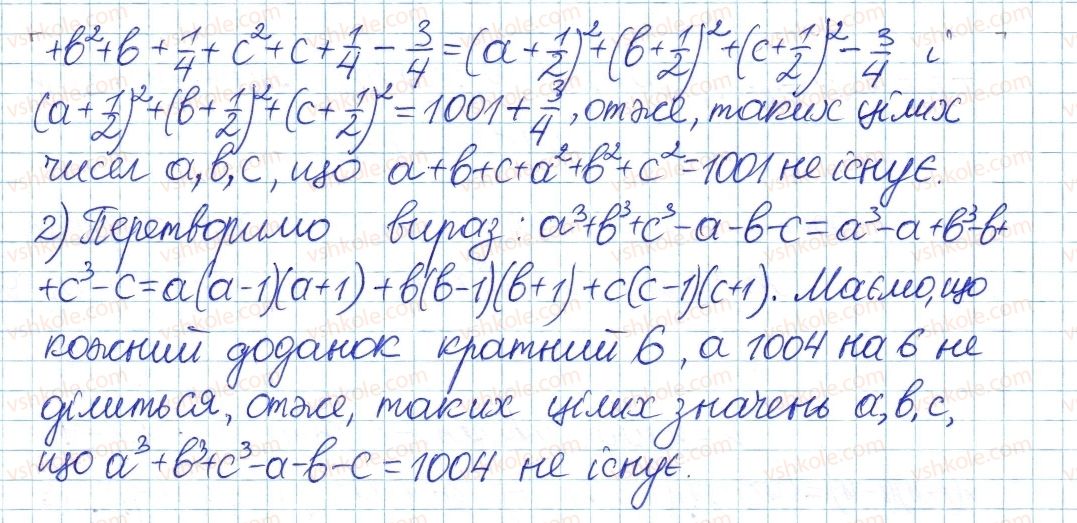 +b²+b+1/4+c²+c+1/4-3/4=(a+1/2)²+(b+1/2)²+(c+1/2)²-3/4 і
(a+1/2)²+(b+1/2)²+(c+1/2)²=1001+3/4, отже, таких цілих
чисел a,b,c, що a+b+c+a²+b²+c²=1001 не існує.
2) Перетворимо вираз: a³+b³+c³-a-b-c=a³-a+b³-b+
+c³-c=a(a-1)(a+1)+b(b-1)(b+1)+c(c-1)(c+1). Маємо, що
кожний доданок кратний 6, а 1004 на 6 не
ділиться, отже, таких цілих значень a,b,c,
що a³+b³+c³-a-b-c=1004 не існує.